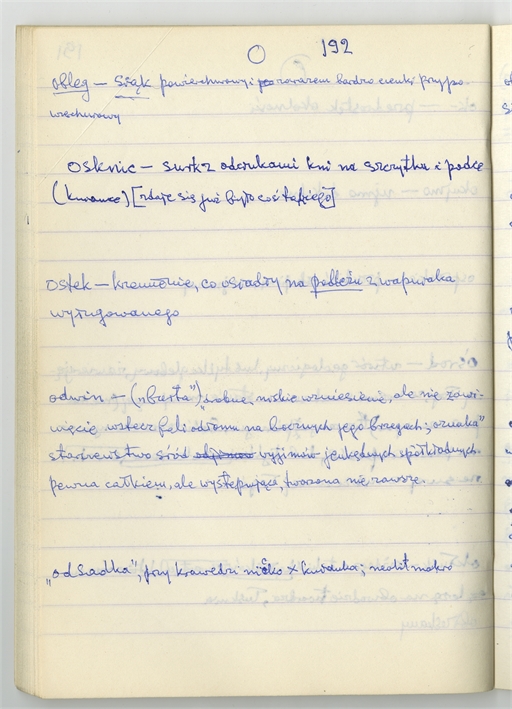 O 192
obłęg — siąk powierzchniowy, i zarazem bardzo cienki przypo-
wierzchniowy
Osknic — surk z odciskami kni na szczytku i podce
(kurance) [zdaje się już było coś takiego]
Ostek — kramienie, co osiadły na podłożu z wapniaka
wyługowanego
odwin — („Barta") wolne, niskie wzniesienie, ale nie zawi-
nięcie wstecz fali odłomu na bocznych jego brzegach; oznaka
starszeństwo śród wyjimów jenkędnych spółkładnych
pewna całkiem, ale występująca, tworzona nie zawsze.
„odsadka", przy krawędzi